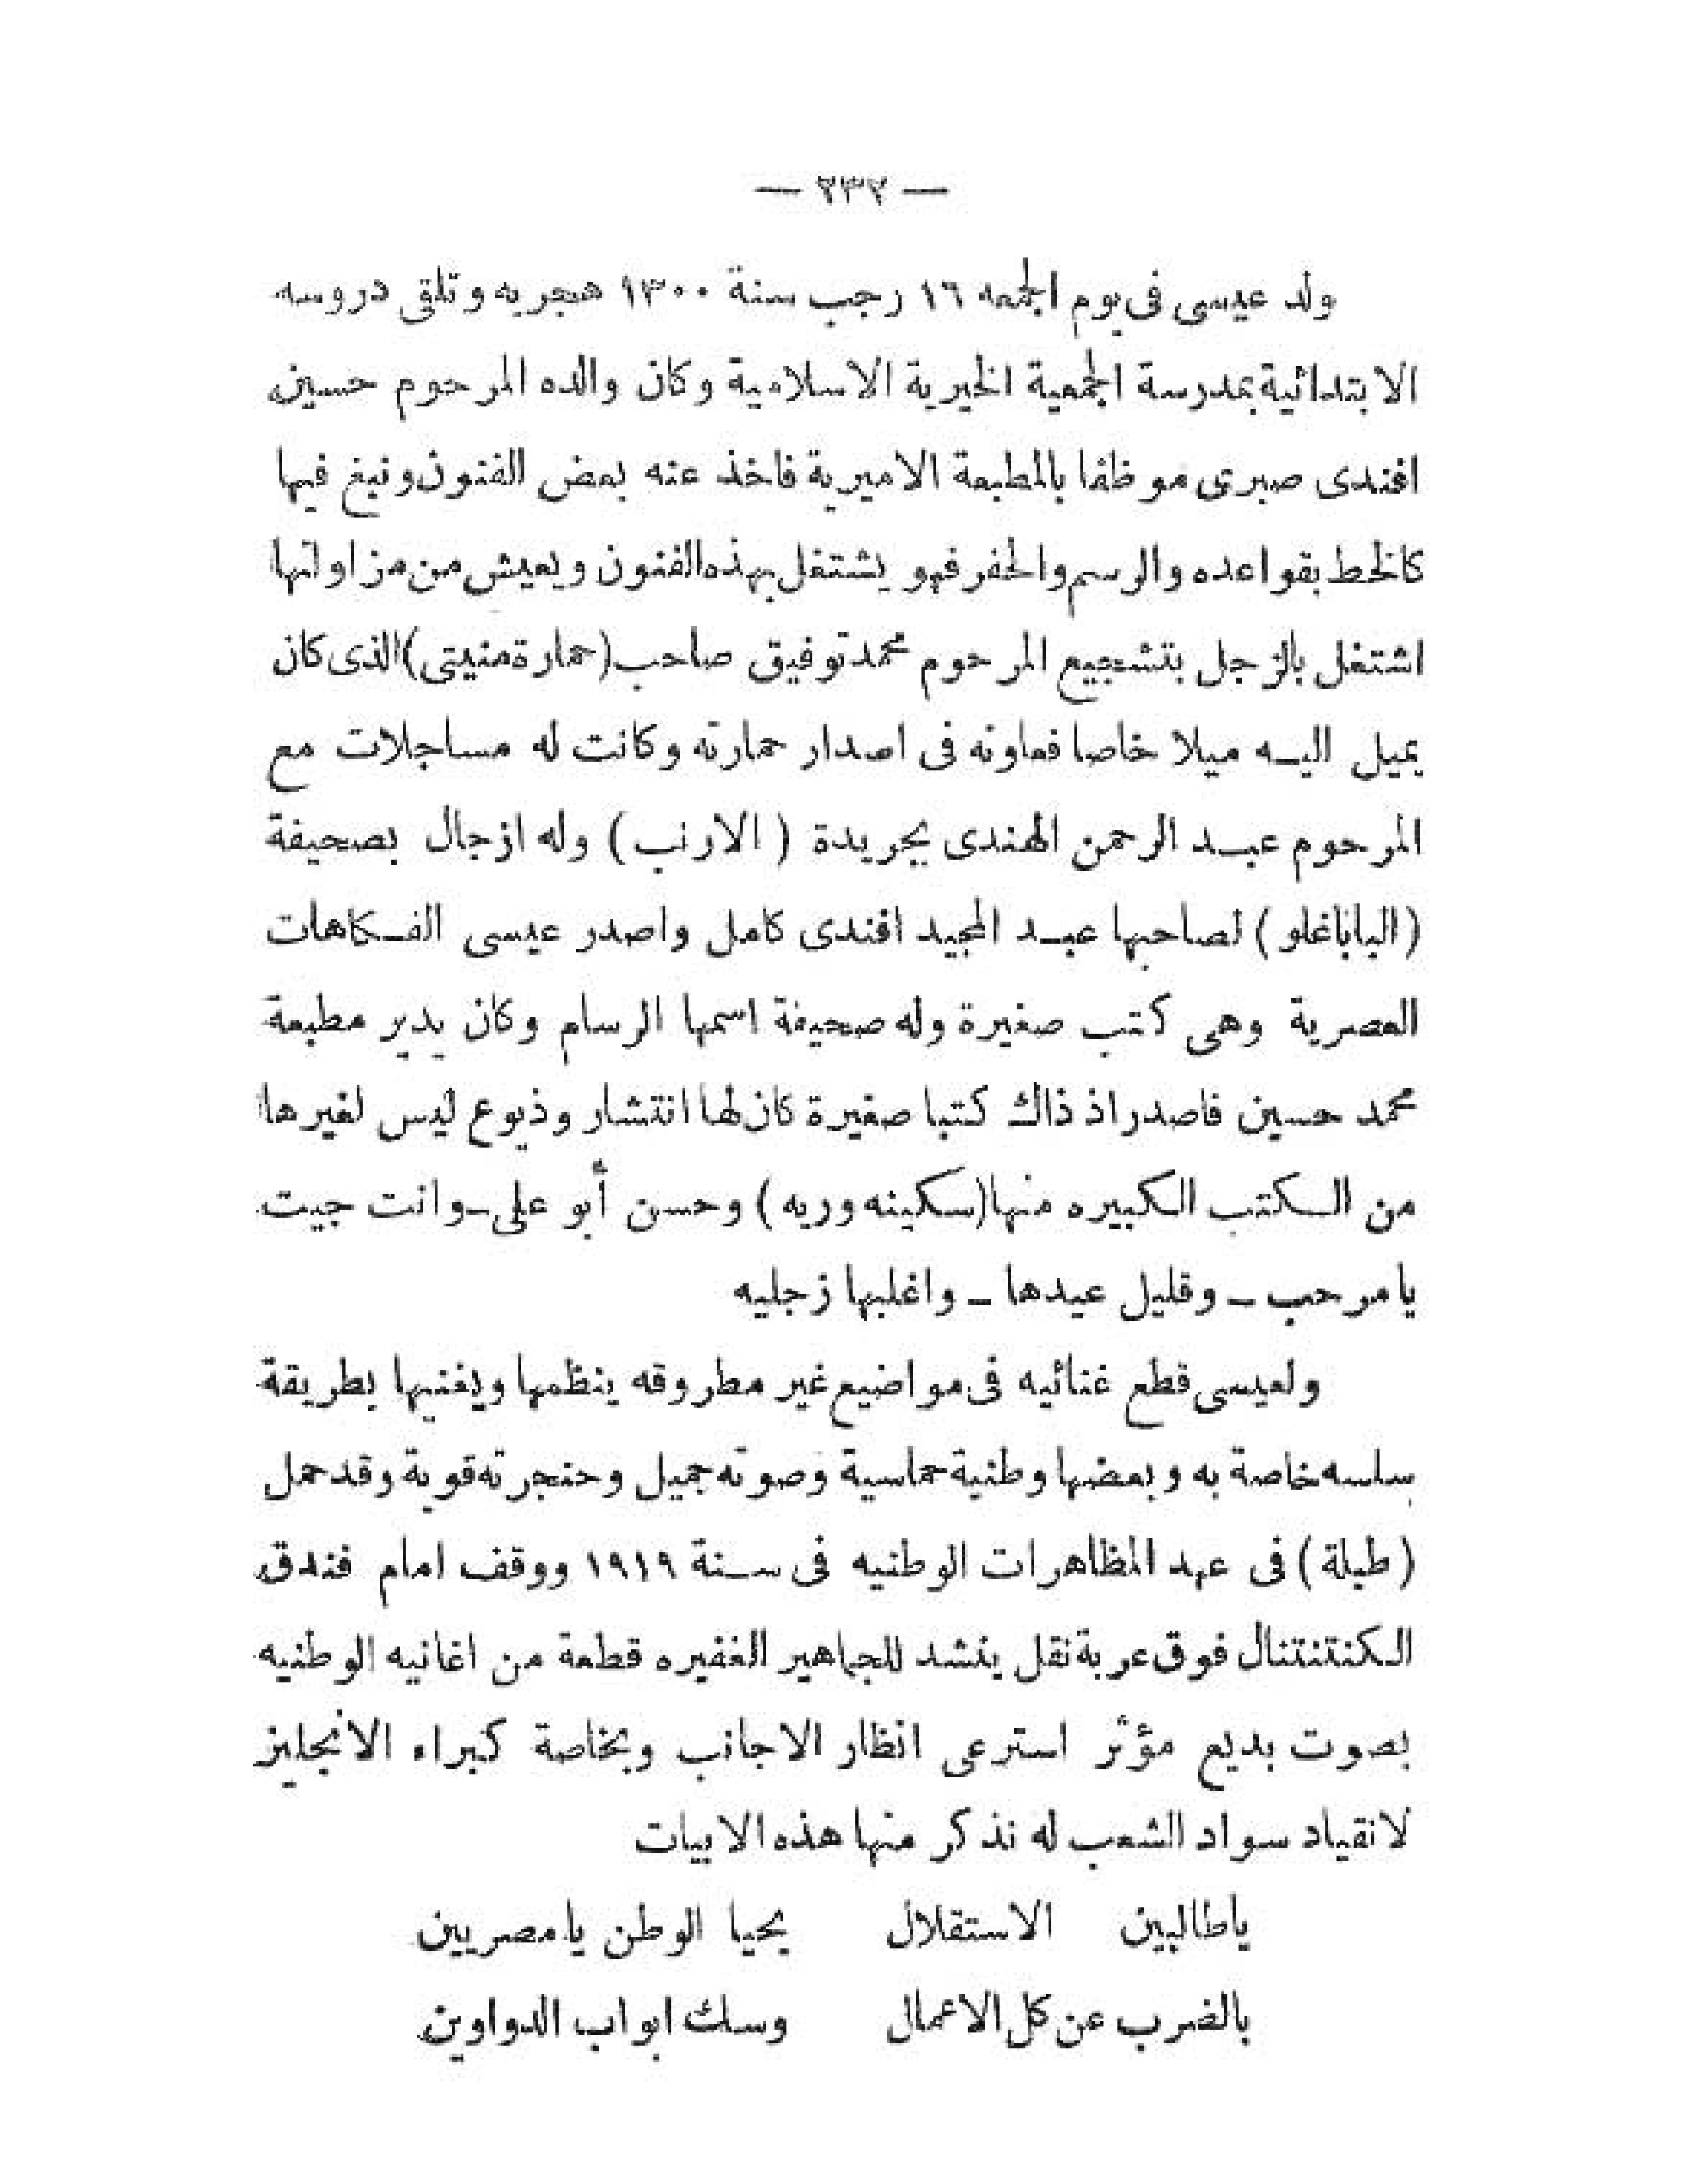 — ٢٣٢ —
ولد عيسى فى يوم الجمعه ١٦ رجب سنة ١٣٠٠ هجريه وتلقى دروسه
الابتدائية بمدرسة الجمعية الخيرية الاسلامية وكان والده المرحوم حسين
افندى صبرى موظفا بالمطبعة الاميرية فاخذ عنه بعض الفنون ونبغ فيها
كالخط بقواعده والرسم والحفر فهو يشتغل بهذه الفنون ويعيش من مزاولتها
اشتغل بالزجل بتشجيع المرحوم محمد توفيق صاحب (حمارة منيتى) الذى كان
يميل اليه ميلا خاصا فعاونه فى اصدار حمارته وكانت له مساجلات مع
المرحوم عبد الرحمن الهندى بجريدة ( الارنب ) وله ازجال بصحيفة
( الباباغلو ) لصاحبها عبد المجيد افندى كامل واصدر عيسى الفكاهات
العصرية وهى كتب صغيرة وله صحيفة اسمها الرسام وكان يدير مطبعة
محمد حسين فاصدر اذ ذاك كتبا صغيرة كان لها انتشار وذيوع ليس لغيرها
من الكتب الكبيره منها (سكينه وريه ) وحسن أبو على ـ وانت جيت
يامرحب ـ وقليل عيدها ـ واغلبها زجليه
ولعيسى قطع غنائيه فى مواضيع غير مطروقه ينظمها ويغنيها بطريقة
سلسه خاصة به وبعضها وطنية حماسية وصوته جميل وحنجرته قوية وقد حمل
( طبلة ) فى عهد المظاهرات الوطنيه فى سنة ١٩١٩ ووقف امام فندق
الكنتنتنال فوق عربة نقل ينشد للجماهير الغفيره قطعة من اغانيه الوطنيه
بصوت بديع مؤثر استرعى انظار الاجانب وبخاصة كبراء الانجليز
لانقياد سواد الشعب له نذكر منها هذه الابيات
ياطالبين الاستقلال يحيا الوطن يامصريين
بالضرب عن كل الاعمال وسك ابواب الدواوين